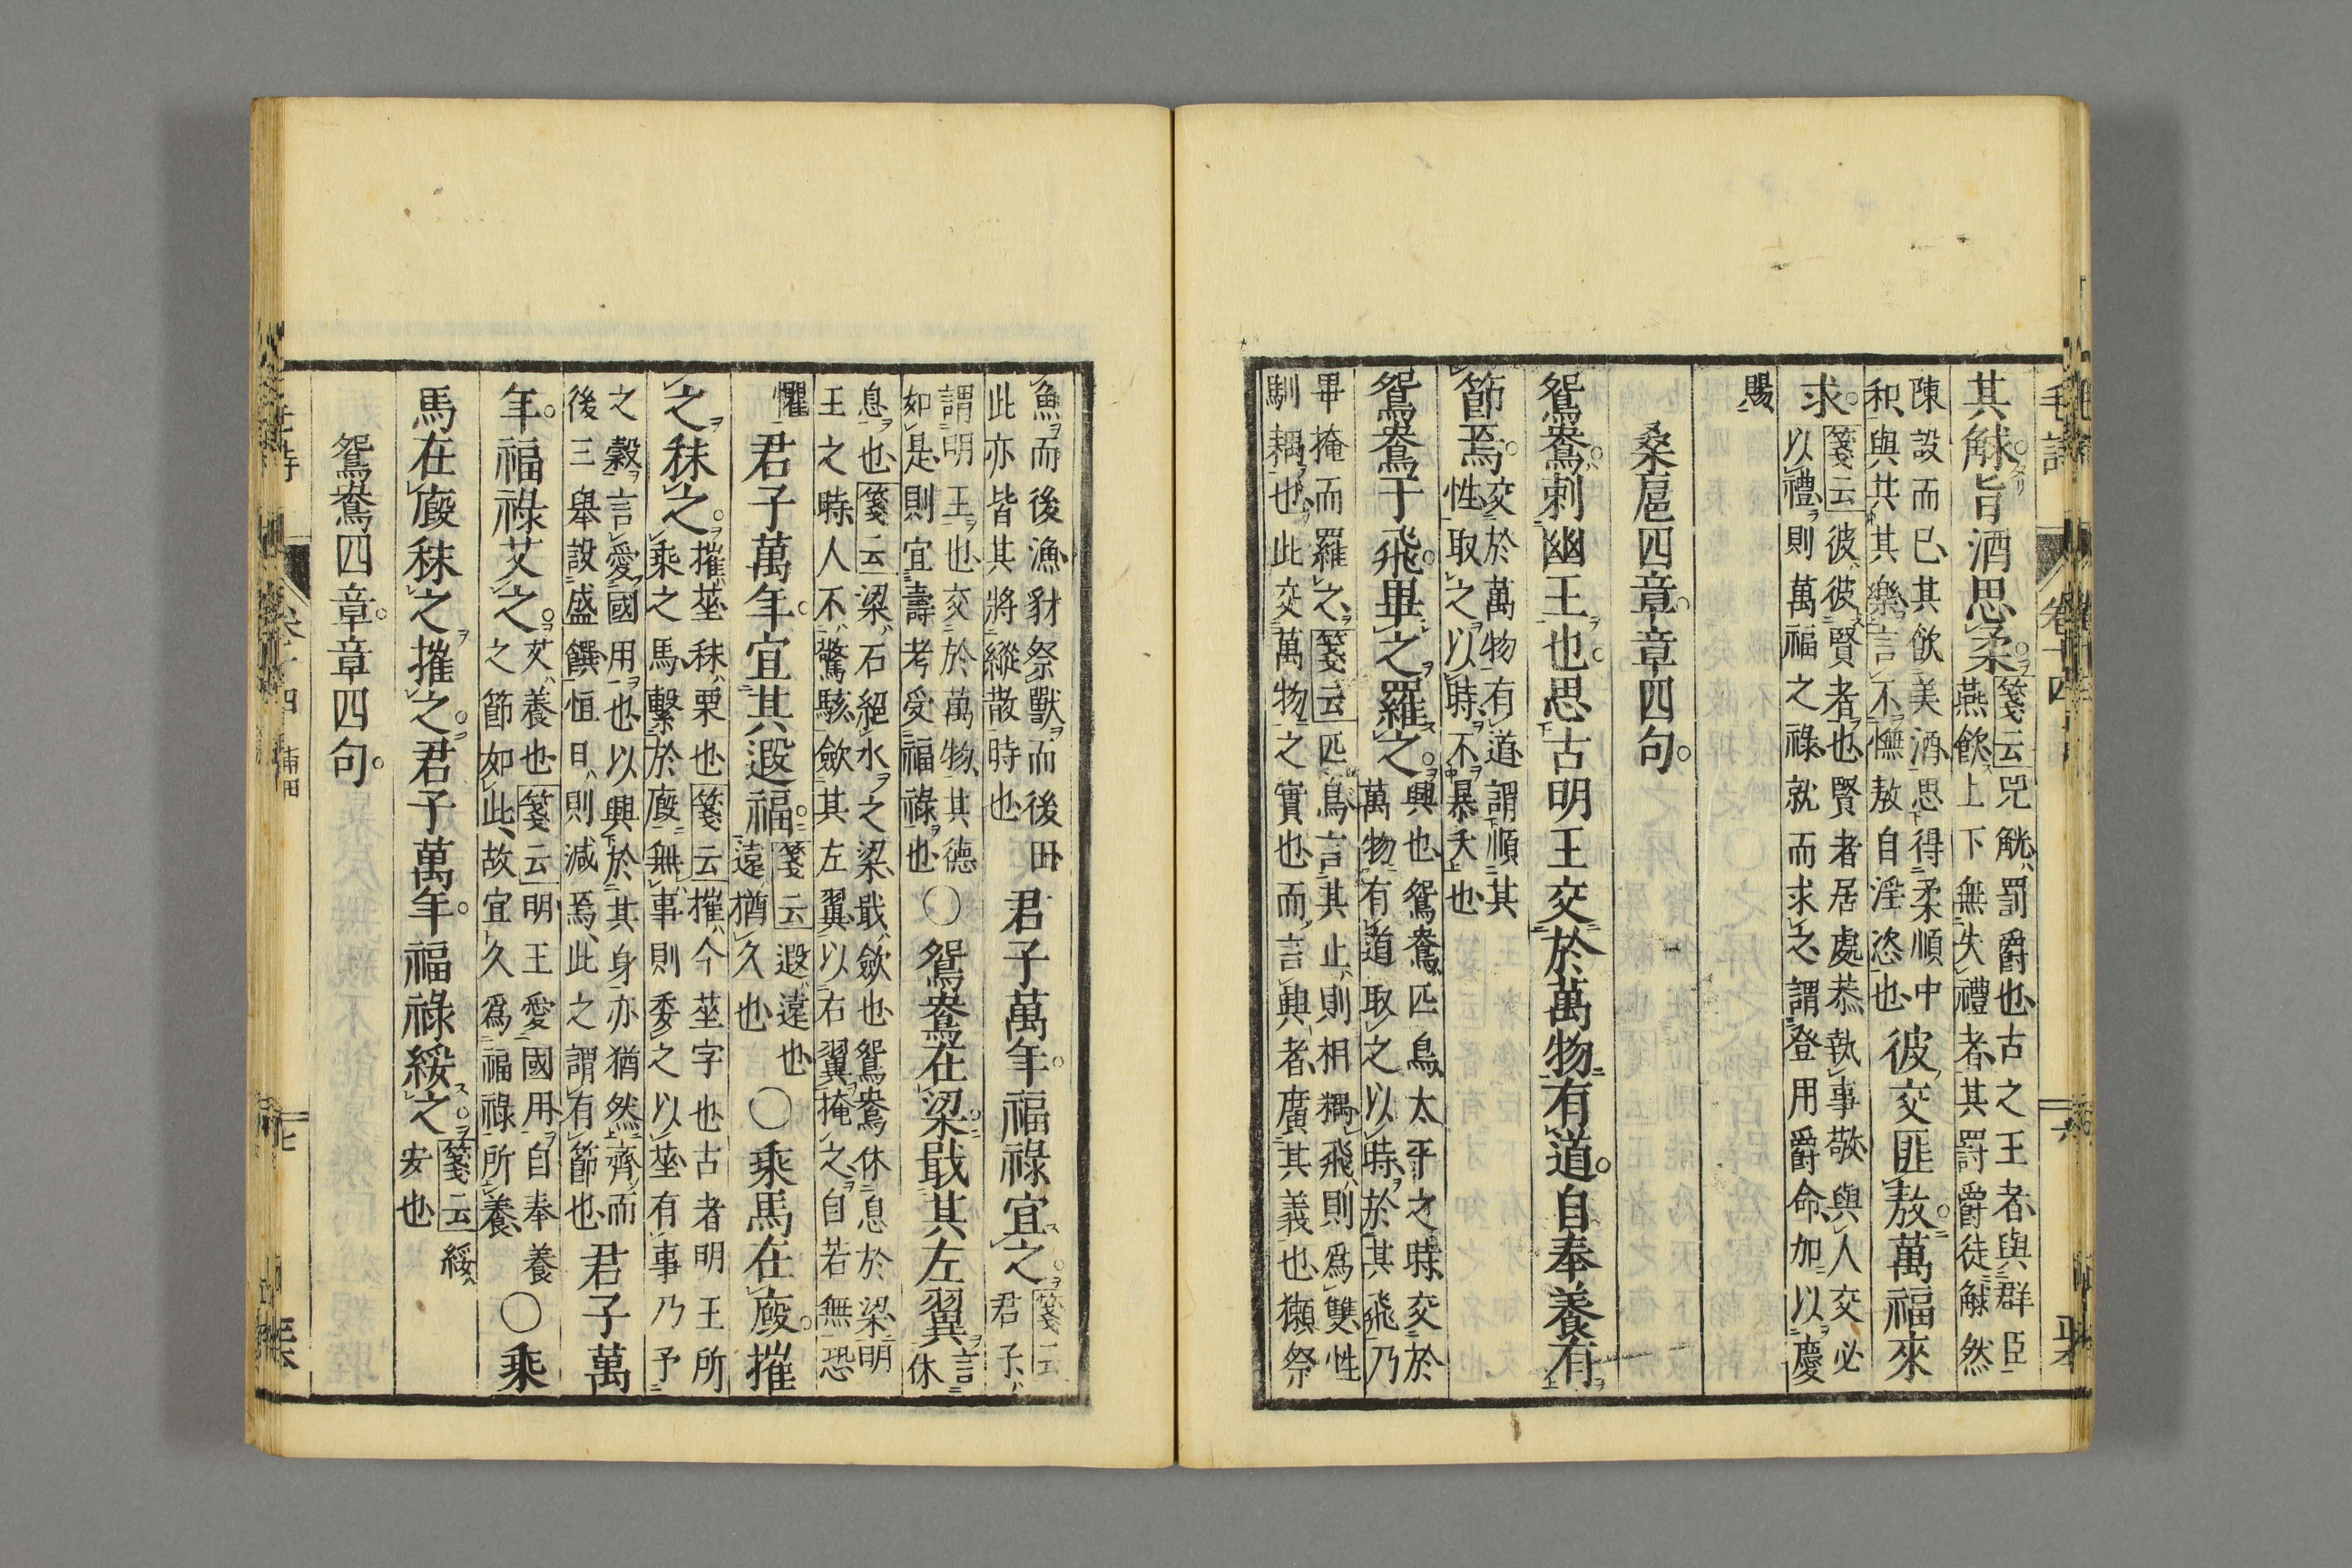 其觩旨酒思柔箋云兕觥罰爵也古之王者與群臣
燕飲上下無失禮者其罰爵徒觩然
陳設而已其飲美酒思得柔順中
和與共其樂言不憮敖自淫恣也彼交匪敖萬福來
求箋云彼彼賢者也賢者居處恭執事敬與人交必
以禮則萬福之祿就而求之謂登用爵命加以慶
賜
桑扈四章章四句
鴛鴦刺幽王也思古明王交於萬物有道自奉養有
節焉交於萬物有道謂順其
性取之以時不暴夭也
鴛鴦于飛畢之羅之興也鴛鴦匹鳥太平之時交於
萬物有道取之以時於其飛乃
畢掩而羅之箋云匹鳥言其止則相耦飛則爲雙性
馴耦也此交萬物之實也而言興者廣其義也獺祭
魚而後漁豺祭獸而後田
此亦皆其將縱散時也君子萬年福祿宜之箋云
君子
謂明王也交於萬物其德
如是則宜壽考受福祿也〇鴛鴦在梁戢其左翼言
休
息也箋云梁石絕水之梁戢歛也鴛鴦休息於梁明
王之時人不驚駭歛其左翼以右翼掩之自若無恐
懼君子萬年宜其遐福箋云遐遠也
遠猶久也〇乘馬在廄摧
之秣之摧莝秣粟也箋云摧今莝字也古者明王所
乘之馬繫於廄無事則委之以莝有事乃予
之穀言愛國用也以興於其身亦猶然齊而
後三舉設盛饌恒日則減焉此之謂有節也君子萬
年福祿艾之艾養也箋云明王愛國用自奉養
之節如此故宜久爲福祿所養〇乘
馬在廄秣之摧之君子萬年福祿綏之箋云綏
安也
鴛鴦四章章四句
毛詩
卷十四
六